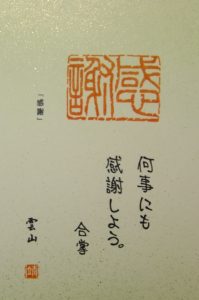 感謝
「感謝」
何事にも
感謝しよう。
合掌
雲山